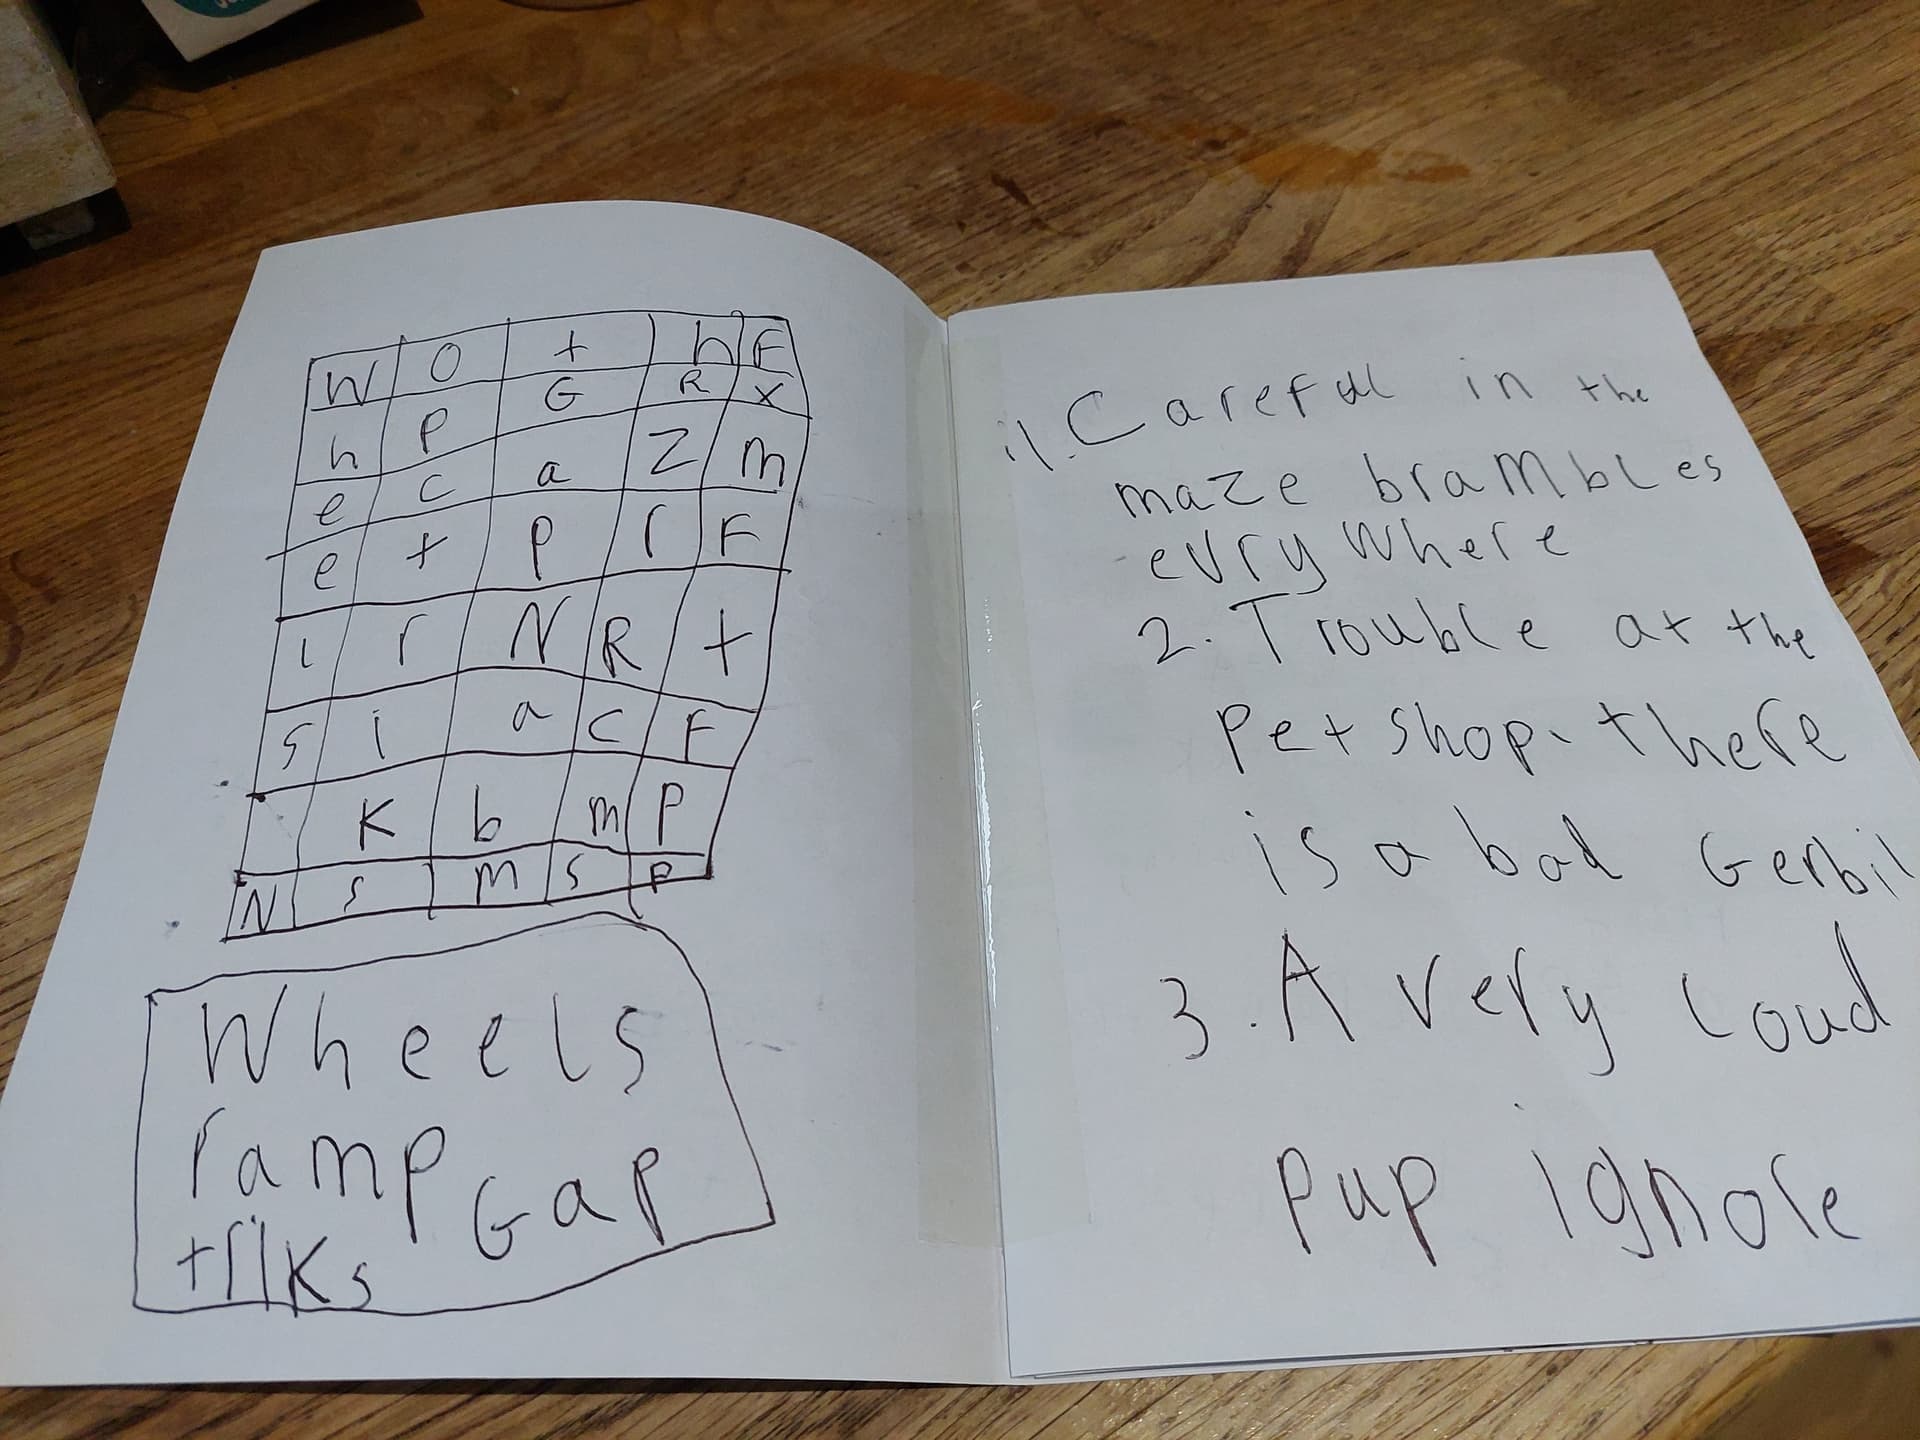 W O t h F
h P G R x
e c a Z m
e t p r F
l r N R t
s i a c F
K b m P
N s m s P
Wheels
ramp Gap
triks
1. Careful in the
maze brambles
evrywhere
2. Trouble at the
Pet shop. there
is a bad Gerbil
3. A very loud
pup ignore